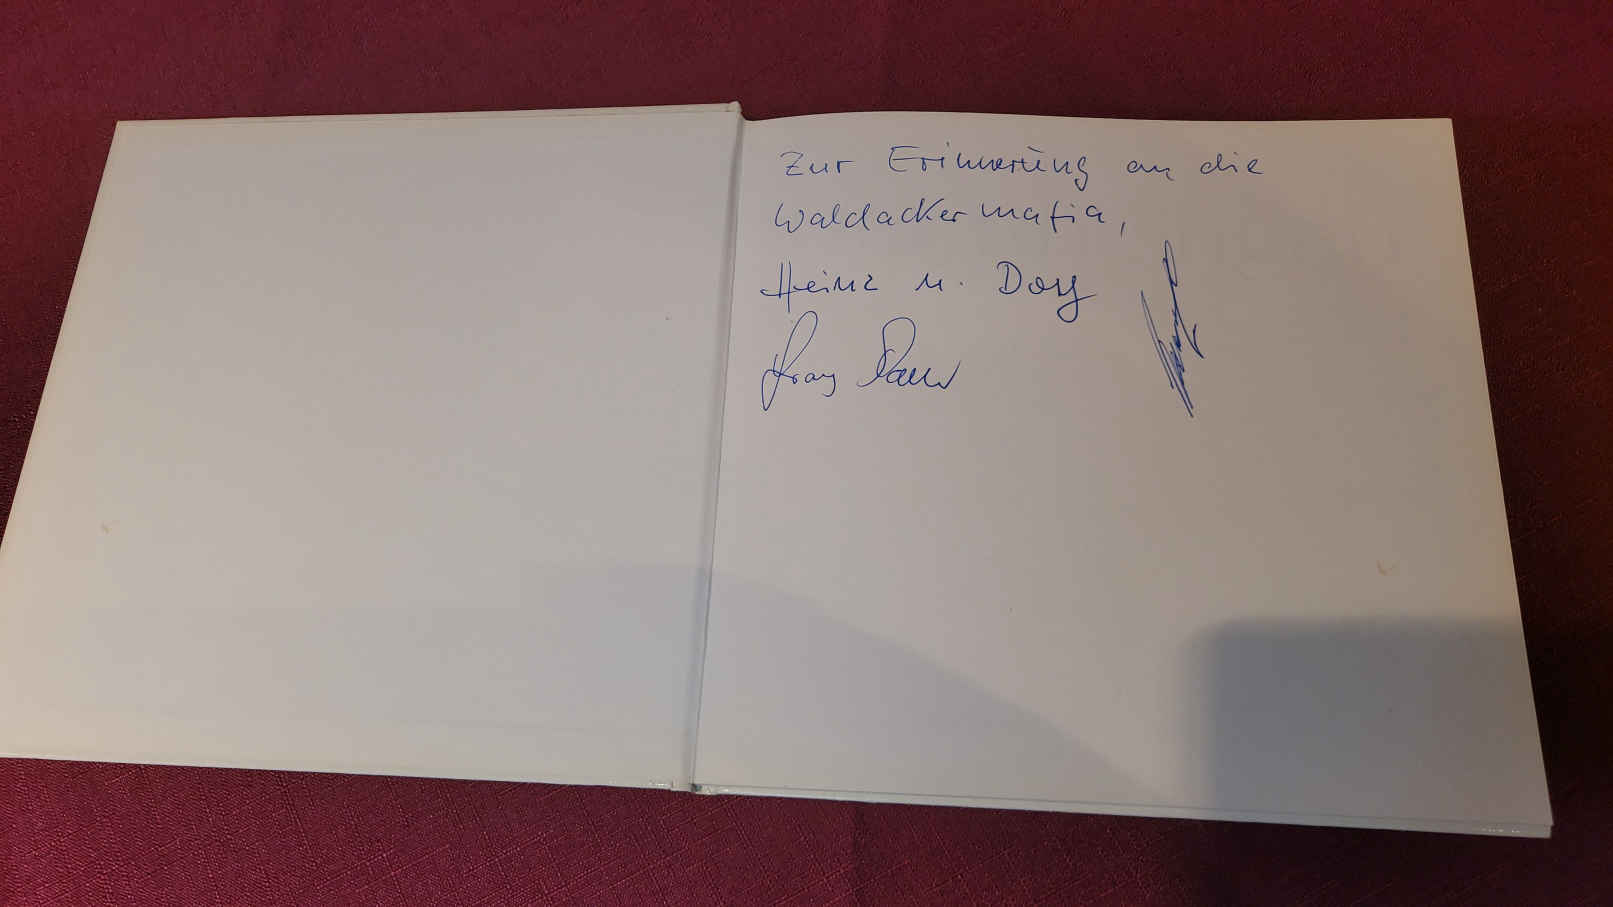 Zur Erinnerung an die
Waldackermafia,
Heinz u.
Franz